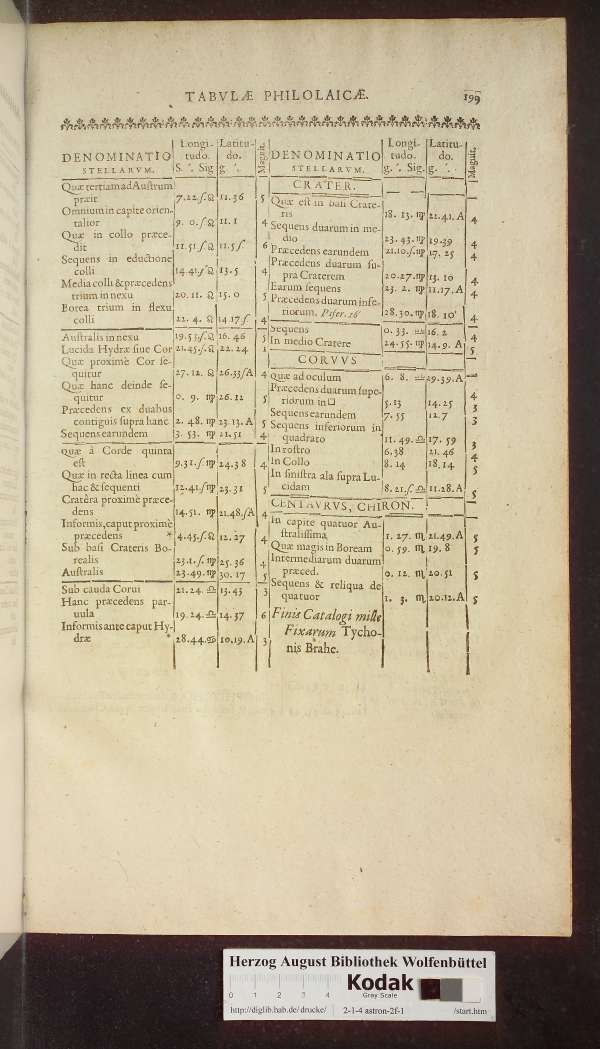 TABVLÆ PHILOLAICÆ. 199
DENOMINATIO STELLARVM. Longitudo. S. ′. Sig Latitudo. g. ′. Magnit.
Quæ tertiam ad Austrum
præit 7.22.ſ.♌ 11.36 5
Omnium in capite orien-
talior 9. 0.ſ.♌ 11.1 4
Quæ in collo præce-
dit 11.51.ſ♌ 11.5ſ 6
Sequens in eductione
colli 14.41ſ♌ 13.5 4
Media colli & præcedens
trium in nexu 20.11.♌ 15.0 5
Borea trium in flexu
colli 22.4.♌ 14.17ſ 4
Australis in nexu 19.51ſ.♌ 16.46 5
Lucida Hydræ siue Cor 21.45.ſ.♌ 22.24 1
Quæ proximè Cor se-
quitur 27.12.♌ 26.33ſA 4
Quæ hanc deinde se-
quitur 0.9.♍ 26.12 5
Præcedens ex duabus
contiguis supra hanc 2.48.♍ 23.13.A 5
Sequens earundem 3.53.♍ 21.51 4
quæ à Corde quinta
est 9.31.ſ.♍ 24.38 4
Quæ in recta linea cum
hac & sequenti 12.41.ſ♍ 23.31 5
Cratêra proximè præce-
dens 14.51.♍ 21.48.ſA 4
Informis, caput proximè
præcedens * 4.45.ſ♌ 12.27 4
Sub basi Crateris Bo-
realis 23.1.ſ.♍ 25.36 4
Australis 23.49.♍ 30.17 5
Sub cauda Corui 21.24.♎ 13.43 3
Hanc præcedens par-
uula 19.24.♎ 14.37 6
Informis ante caput Hy-
dræ * 28.44.♋ 10.19.A 3
DENOMINATIO STELLARVM. Longitudo. g. ′. Sig. Latitudo. g. ′. Magnit.
CRATER.
Quæ est in basi Crate-
ris 18.13.♍ 22.41.A 4
Sequens duarum in me-
dio 23.43.♍ 19.39 4
Præcedens earundem 21.10.ſ.♍ 17.25 4
Præcedens duarum su-
pra Craterem 20.27.♍ 13.10 4
Earum sequens 23.2.♍ 11.17.A 4
Præcedens duarum infe-
riorum. 28.30.♍ 18.10′ 4
Sequens 0.33.♎ 16.2 4
In medio Cratere 24.55.♍ 14.9.A 5
CORVVS
Quæ ad oculum 6.8.♎ 29.39.A 4
Præcedens duarum supe-
riorum in □ 5.13 14.25 3
Sequens earundem 7.55 12.7 3
Sequens inferiorum in
quadrato 11.49.♎ 17.59 3
In rostro 6.38 21.46 4
In Collo 8.14 18.14 5
In sinistra ala supra Lu-
cidam 8.21.ſ.♎ 11.28.A 5
CENTAVRVS, CHIRON.
In capite quatuor Au-
stralissima 1.27.♏ 21.49.A 5
Quæ magis in Boream 0.59.♏ 19.8 5
Intermediarum duarum
præced. 0.12.♏ 20.51 5
Sequens & reliqua de
quatuor 1.3.♏ 20.12.A 5
Finis Catalogi mille
Fixarum Tycho-
nis Brahe.
Herzog August Bibliothek Wolfenbüttel
0 1 2 3 4
Kodak
Gray Scale
http://diglib.hab.de/drucke/ 2-1-4 astron-2f-1 /start.htm